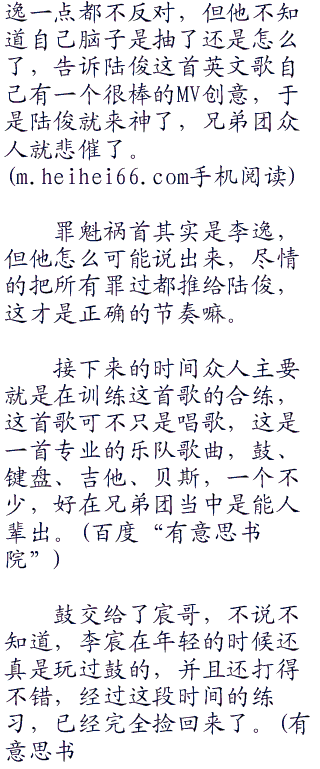 逸一点都不反对，但他不知
道自己脑子是抽了还是怎么
了，告诉陆俊这首英文歌自
己有一个很棒的MV创意，于
是陆俊就来神了，兄弟团众
人就悲催了。
(m.heihei66.com手机阅读)
罪魁祸首其实是李逸，
但他怎么可能说出来，尽情
的把所有罪过都推给陆俊，
这才是正确的节奏嘛。
接下来的时间众人主要
就是在训练这首歌的合练，
这首歌可不只是唱歌，这是
一首专业的乐队歌曲，鼓、
键盘、吉他、贝斯，一个不
少，好在兄弟团当中是能人
辈出。(百度“有意思书
院”)
鼓交给了宸哥，不说不
知道，李宸在年轻的时候还
真是玩过鼓的，并且还打得
不错，经过这段时间的练
习，已经完全捡回来了。(有
意思书